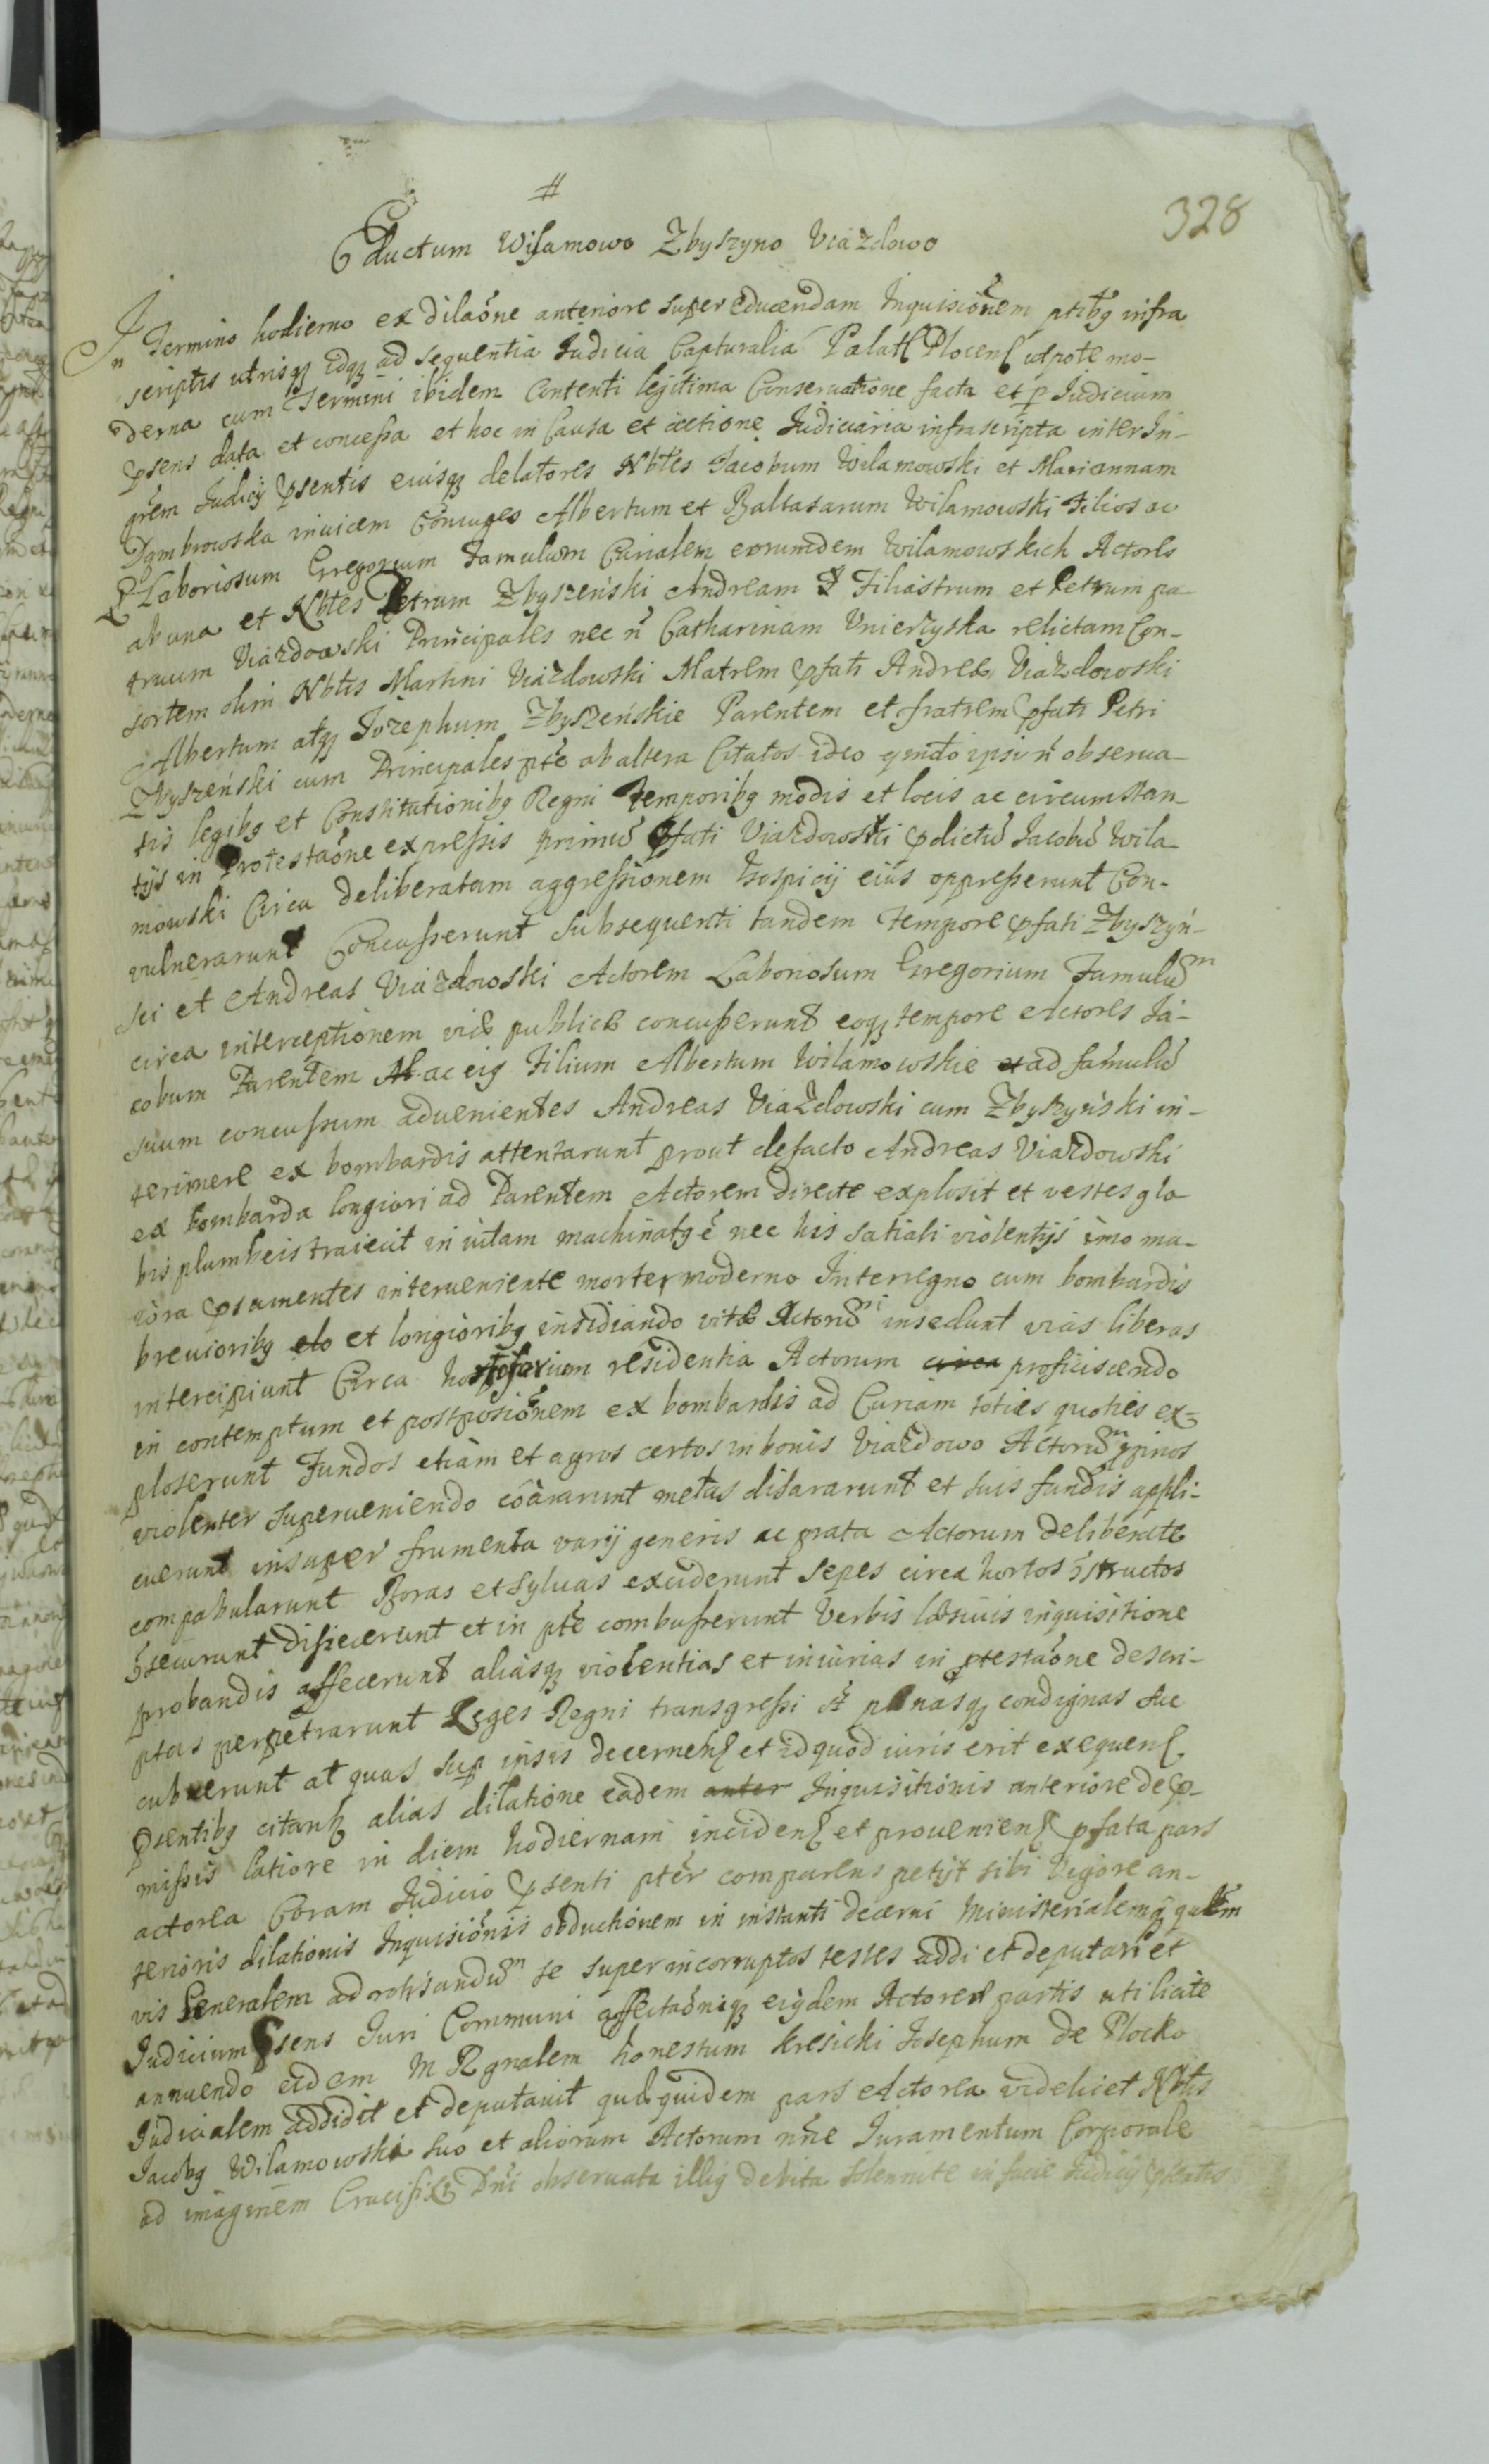 #
328
Eductum Wilamowo Zbyszyno Uiazdowo
In Termino hodierno ex dilaõne anteriore super educendam Inquisiõnem ptibg infra
scriptis utrisq idq ad sequentia Iudicia Capturalia Palatt Plocen utpote mo-
derna cum Termini ibidem Contenti legitima Conseruatione facta et p Iudicium
psens data et concessa et hoc in Causa et actione Iudiciaria infrascripta inter In-
grem Iudicij psentis eiusq delatores Nbtes Iacobum Wilamowski et Mariannam
Dąmbrowska inuicem Coniuges Albertum et Baltasarum Wilamowski Filios ac
Laboriosum Gregorium Famulum Curialem eorumdem Wilamowskich Actores
ab una et Nbtes Petrum Zbyszeński Andream Filiastrum et Petrum pa-
truum Uiazdowski Principales nec ñ Catharinam Unierzyska relictam Con-
sortem olim Nbtis Martini Uiazdowski Matrem pfati Andreæ Uiazdowski
Albertum atq Iozephum Zbyszeńskie Parentem et fratrem pfati Petri
Zbyszeński cum Principales pte ab altera Citatos ideo qmdo ipsi ñ obserua-
tis legibg et Constitutionibg Regni temporibg modis et locis ac circumstan-
tijs in Protestaõne expressis primũ pfati Uiazdowski pdictũ Iacobũ Wila-
mowski Circa deliberatam aggressionem hospicij eius oppresserunt Con-
vulnerarunt Concusserunt subsequenti tandem tempore pfati Zbyszyń-
sci et Andreas Uiazdowski Actorem Laboriosum Gregorium Famulũm
circa interceptionem viæ publicæ concusserunt eoq tempore Actores Ia-
cobum Parentem ac eig Filium Albertum Wilamowskie et ad famulũ
suum concussum aduenientes Andreas Uiazdowski cum Zbyszyński in-
terimere ex bombardis attentarunt prout defacto Andreas Uiazdowski
ex bombarda longiori ad Parentem Actorem directe explosit et vestes glo
bis plumbeis traiecit in vitam machinatg ẽ nec his satiati violentijs imo ma-
iora psumentes interueniente morte moderno Interregno cum bombardis
breuioribg elo et longioribg insidiando vitæ Actorũ insedunt vias liberas
intercipiunt Circa residentia Actorum circa proficiscendo
in contemptum et postposiõnem ex bombardis ad Curiam toties quoties ex-
ploserunt Fundos etiam et agros certos in bonis Uiazdowo Actorũm ppinos
violenter superueniendo cõararunt metas disararunt et suis fundis appli-
cuerunt insuper frumenta varij generis ac prata Actorum deliberate
compabularunt Boras et syluas exciderunt sepes circa hortos õstructos
õsecurunt disiecerunt et in pte combusserunt Verbis læsiuis inquisitione
probandis affecerunt aliasq violentias et iniurias in ptestaõne descri-
ptas perpetrarunt Leges Regni transgressi st pænasq condignas suc
cubuerunt at quas sup ipsis decernen et id quod iuris erit exequen
psentibg citant alias dilatione eadem anter Inquisitionis anteriore de p-
missis latiore in diem hodiernam inciden et prouenien pfata pars
actorea Coram Iudicio psenti pter comparens petijt sibi Vigore an-
terioris dilationis Inquisiõnis obductionem in instanti decerni Ministerialemq quem
vis Generalem ad rotisandũm se super incorruptos testes addi et deputari et
Iudicium psens Iuri Communi affectaõniq eigdem Actoreæ partis utilicite
annuendo eidem M Rgnalem honestum Kresicki Iosephum de Plocko
Iudicialem addidit et deputauit quæquidem pars Actorea videlicet Nbtis
Iacobg Wilamowski suo et aliorum Actorum nñe Iuramentum Corporale
ad imaginem Crucifixi Dñi obseruata illig debita solennite in facie Iudicij psentis